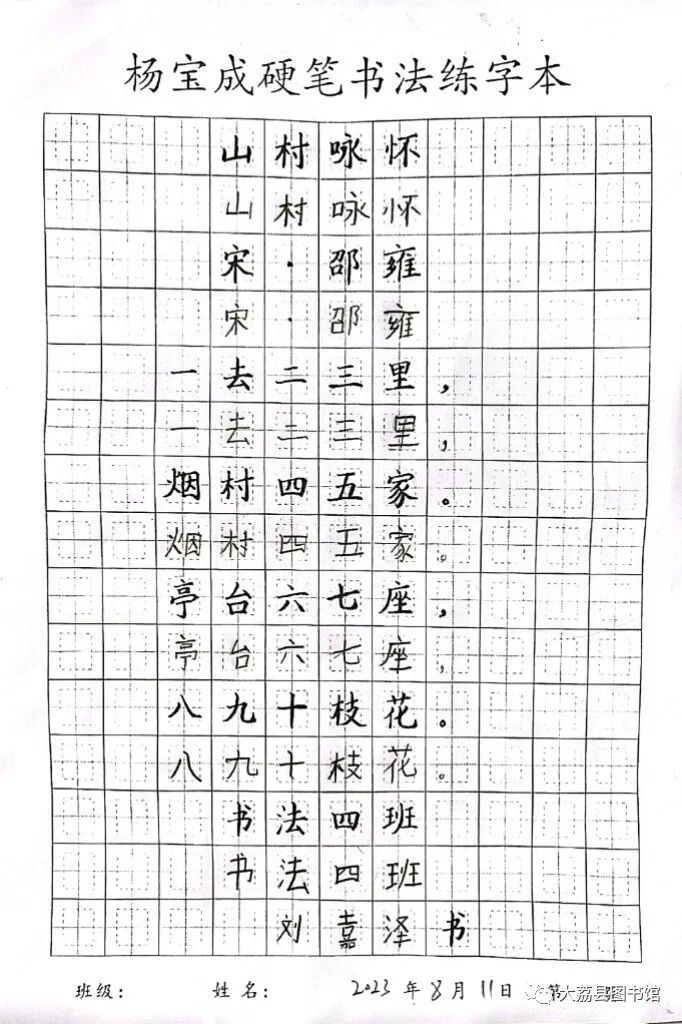 杨宝成硬笔书法练字本
山村咏怀
山村咏怀
宋·邵雍
宋·邵雍
一去二三里，
一去二三里，
烟村四五家。
烟村四五家。
亭台六七座，
亭台六七座，
八九十枝花。
八九十枝花。
书法四班
书法四班
刘嘉泽书
班级： 姓名： 2023年8月11日 第
大荔县图书馆